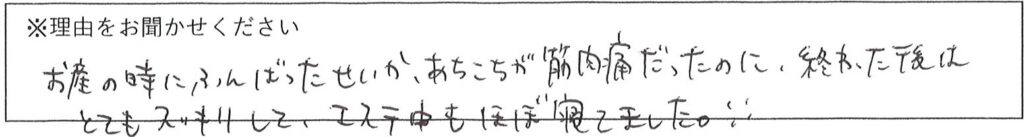 ※理由をお聞かせください
お産の時にふんばったせいか、あちこちが筋肉痛だったのに、終わった後は
とてもスッキリして、エステ中もほぼ寝てました。